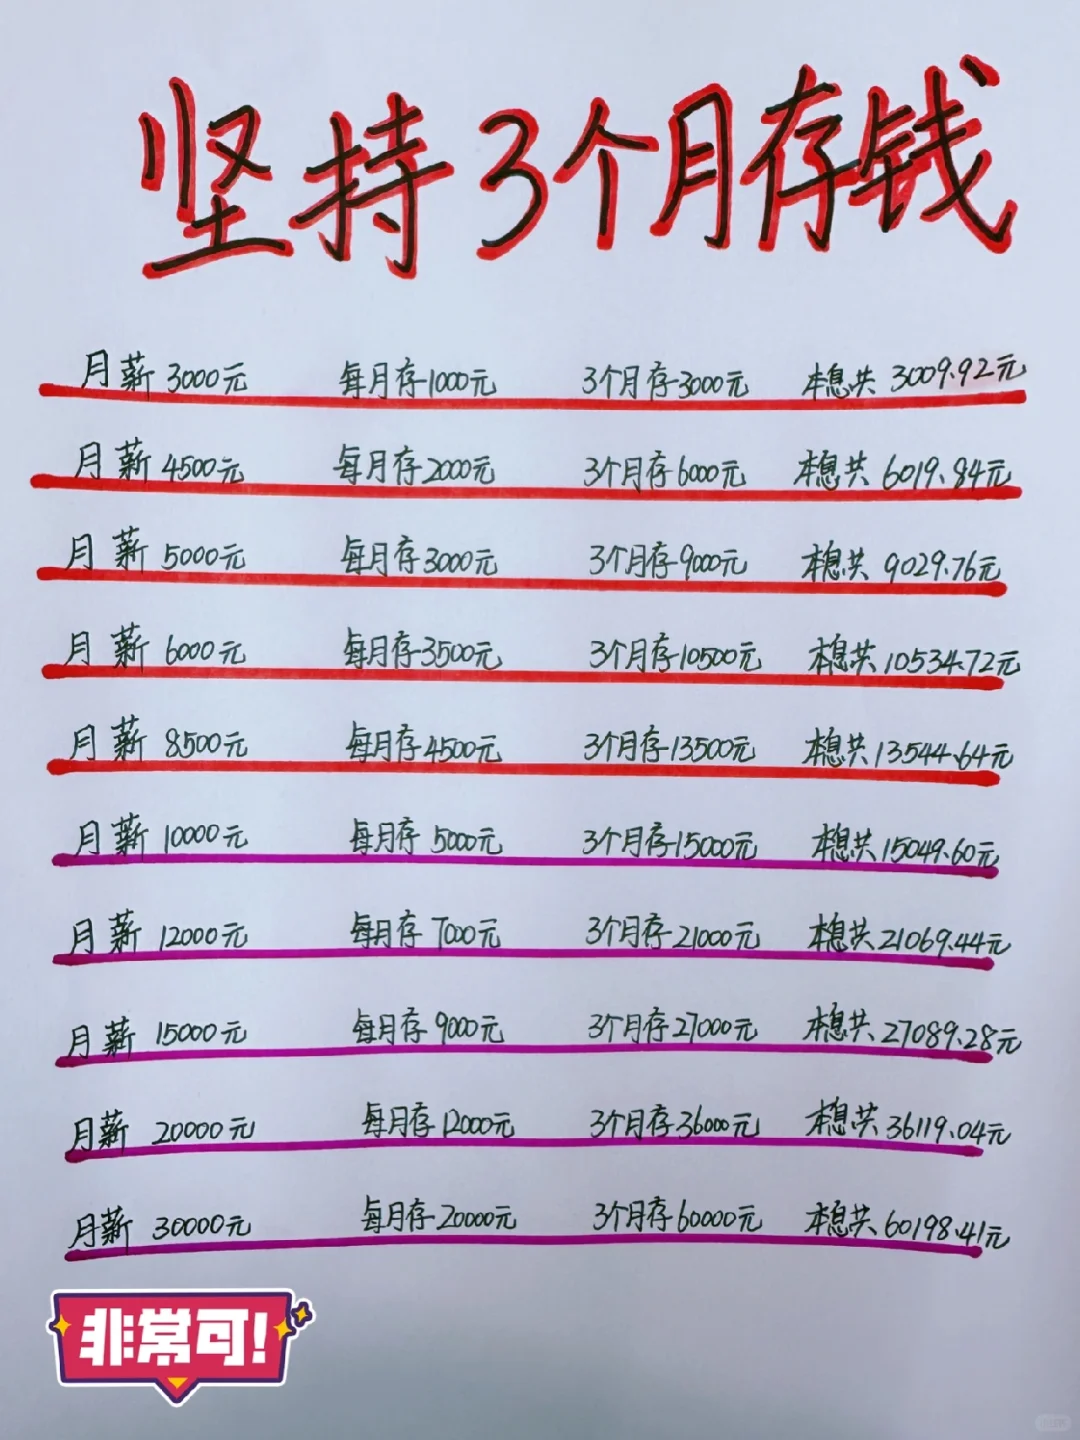 坚持3个月存钱
月薪 3000元 每月存1000元 3个月存3000元 本息共 3009.92元
月薪 4500元 每月存2000元 3个月存6000元 本息共 6019.84元
月薪 5000元 每月存3000元 3个月存9000元 本息共 9029.76元
月薪 6000元 每月存3500元 3个月存10500元 本息共 10534.72元
月薪 8500元 每月存4500元 3个月存13500元 本息共 13544.64元
月薪 10000元 每月存 5000元 3个月存15000元 本息共 15049.60元
月薪 12000元 每月存 7000元 3个月存21000元 本息共 21069.44元
月薪 15000元 每月存 9000元 3个月存27000元 本息共 27089.28元
月薪 20000元 每月存 12000元 3个月存36000元 本息共 36119.04元
月薪 30000元 每月存20000元 3个月存60000元 本息共 60198.41元
非常可!